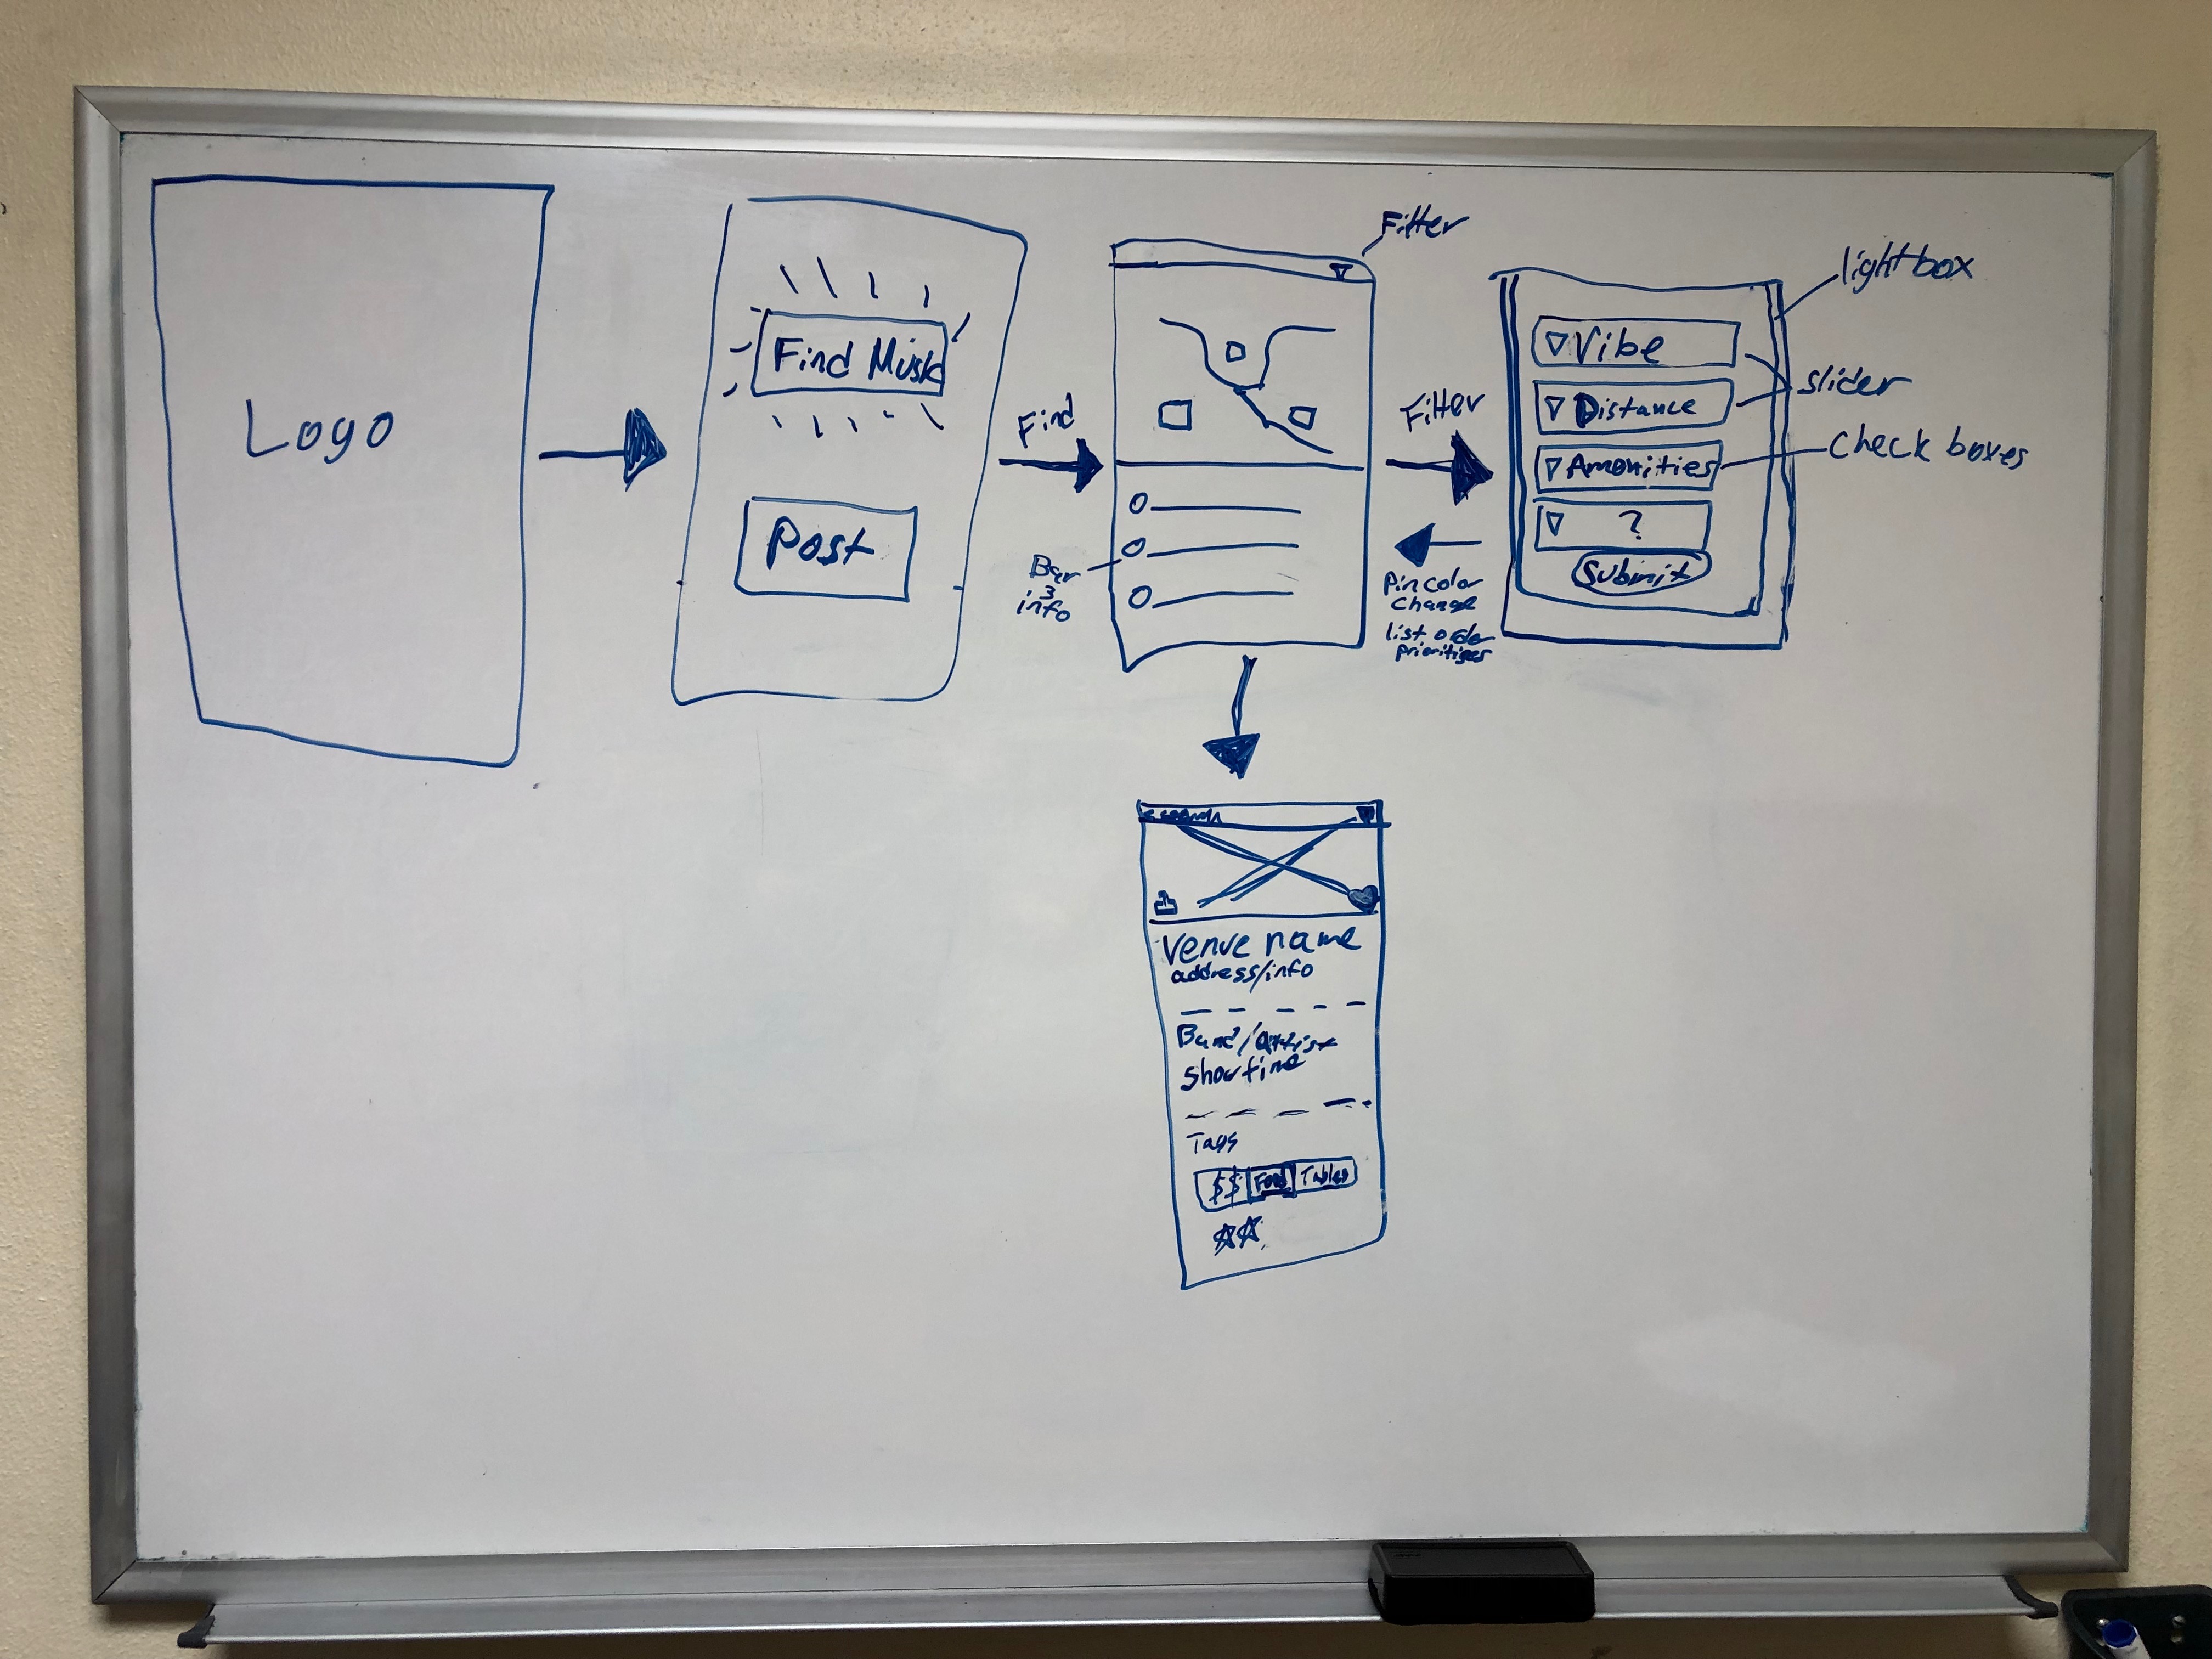 Logo
Find Music
Post
Find
Filter
Bar
info
Filter
Pin color
change
list order
prioritizes
lightbox
▽ Vibe
▽ Distance
▽ Amonities
▽ ?
Submit
slider
check boxes
< search
Venue name
address/info
Band/artist
showtime
Tags
$$ Food Tables